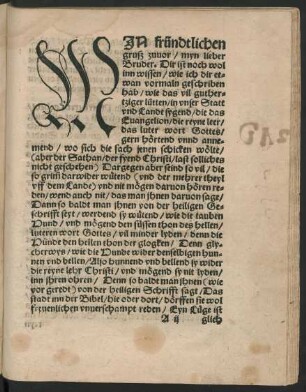 MJn fründtlichen
gruß zuuor / myn lieber
Bruder. Dir ist noch wol
inn wissen / wie ich dir et-
wan vormaln geschriben
hab / wie das vil guther-
tziger lütten / in vnser Statt
vnd Lande sygend / die das
Euangelion / die reyne ler /
das luter wort Gottes /
gern hörtend vnnd anne-
mend / wo sich die sach yenen schicken wölte /
(aber der Sathan / der fyend Christi / last sölliches
nicht geschehen) Dargegen aber seind so vil / die
so grim darwider wütend (vnd der mehrer theyl
vff dem Lande) vnd nit mögen daruon hören re-
den / wend auch nit / das man jhnen daruon sage /
Dann so bald man jhnen von der heiligen Ge-
schrifft seyt / werdend sy wütend / wie die tauben
Hund / vnd mögend den süssen thon des hellen /
luteren wort Gottes / vil minder lyden / denn die
Hünde den hellen thon der glogken / Denn gly-
cherwyß / wie die Hunde wider denselbigen hun-
nen vnd hellen / Also hunnend vnd hellend sy wider
die reyne lehr Christi / vnd mögend sy nit lyden /
inn jhren ohren / Denn so bald man jhnen (wie
vor geredt) von der heiligen Schrifft sagt / Das
stadt inn der Bibel / hie oder dort / dörffen sie wol
freuenlichen vnuerschampt reden / Eyn Lüge ist
A ij glich